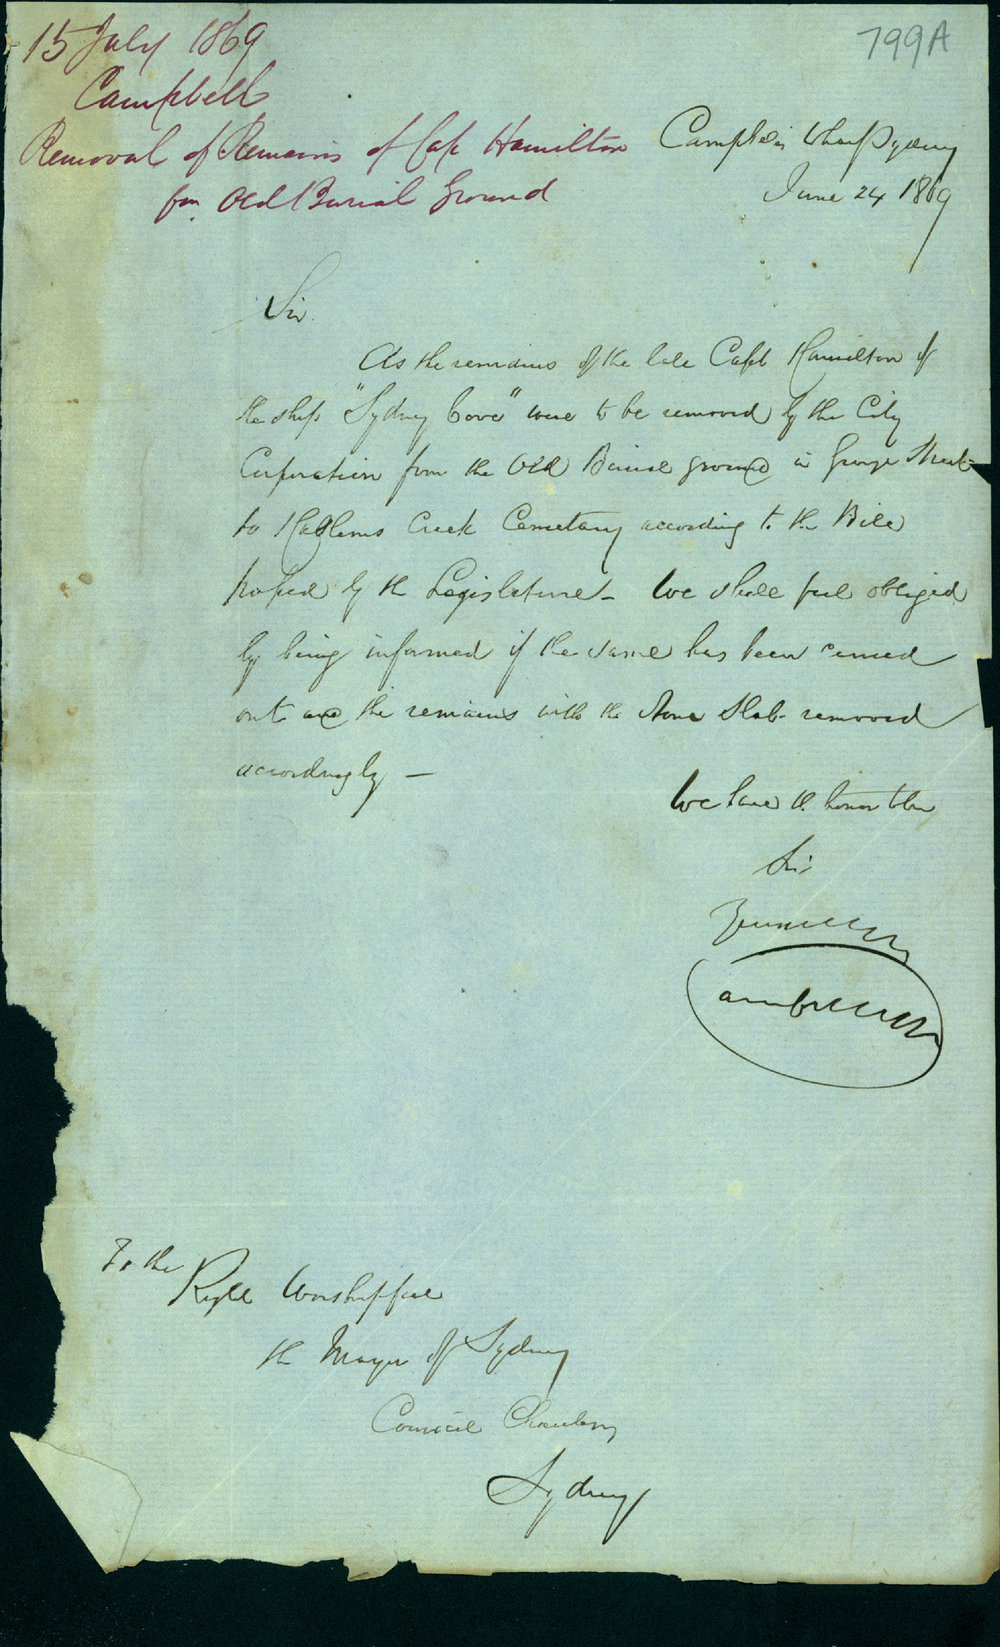 15 July 1869
Campbell
Removal of Remains of Cap Hamilton
fm Old Burial Ground
799A
Campbells Wharf Sydney
June 24 1869
Sir
As the remains of the late Capt Hamilton of
the ship "Sydney Cove" were to be removed by the City
Corporation from the Old Burial ground in George Street
to Haslems Creek Cemetary according to the Bill
passed by the Legislature - We shall feel obliged
by being informed if the same has been carried
out and the remains with the Stone Slab removed
accordingly —
We have the honor to be
Sir
Campbell
To the
Right Worshipful
the Mayor of Sydney
Council Chambers
Sydney